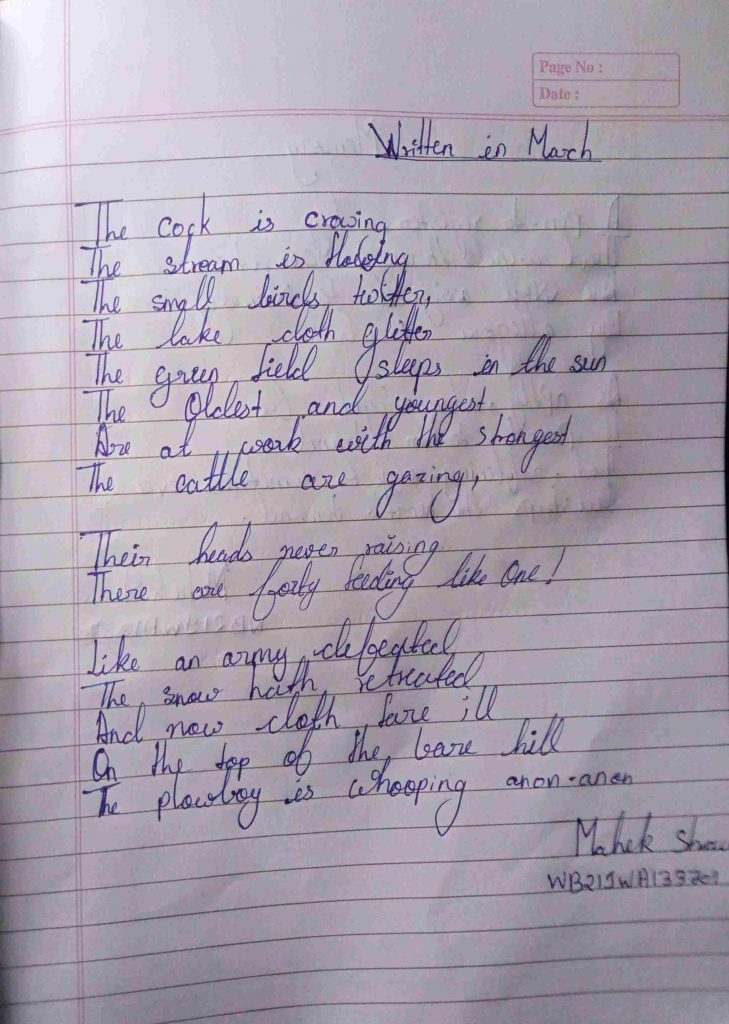 Page No :
Date :
Written in March
The cock is crowing
The stream is flowing
The small birds twitter,
The lake cloth glitter
The green field sleeps in the sun
The Oldest and youngest
Are at work with the strongest
The cattle are gazing,
Their heads never raising
There are forty feeding like One!
Like an army defeated
The snow hath retreated
And now cloth fare ill
On the top of the bare hill
The plowboy is whooping anon-anon
Mahek